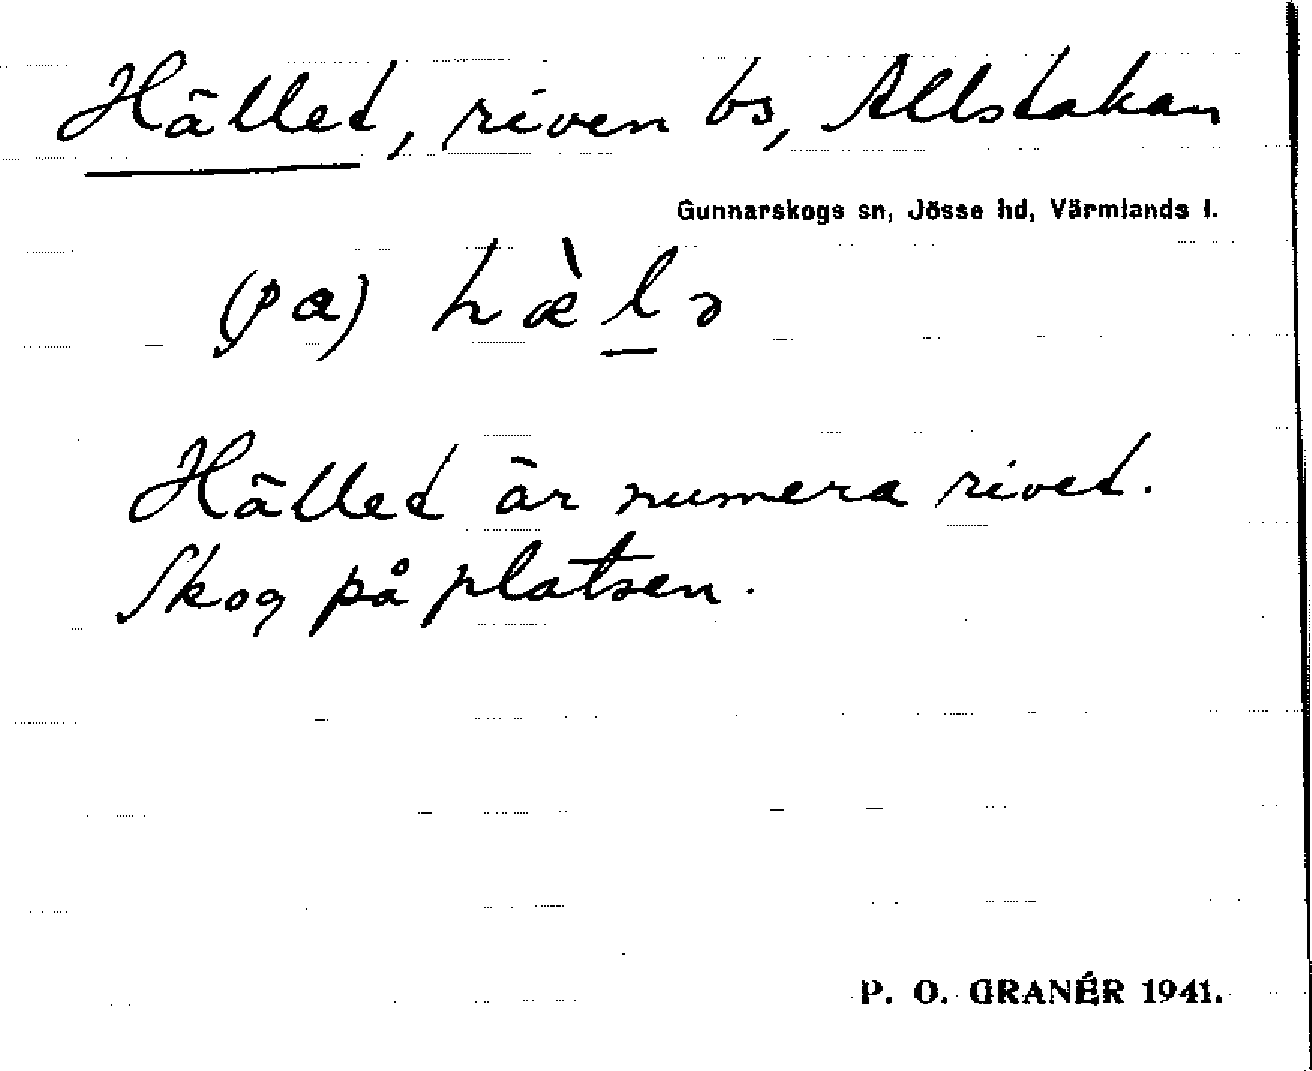 Hället, riven bs, Allstakan
Gunnarskogs sn, Jösse hd, Värmlands l.
(pa) hæ̀lə
Hället är numera rivet.
Skog på platsen.
P. O. GRANÉR 1941.